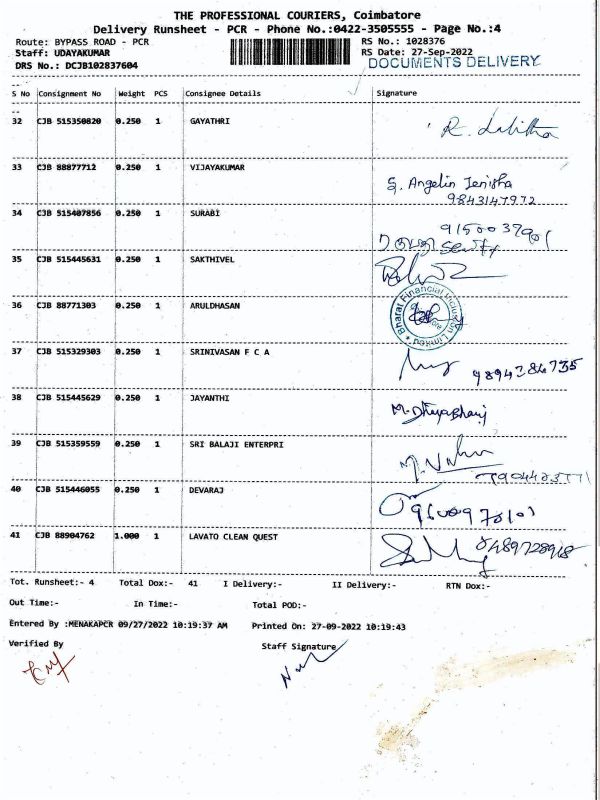 THE PROFESSIONAL COURIERS, Coimbatore
Delivery Runsheet - PCR - Phone No.:0422-3505555 - Page No.:4
Route: BYPASS ROAD - PCR
RS No.: 1028376
Staff: UDAYAKUMAR
RS Date: 27-Sep-2022
DRS No.: DCJB102837604
DOCUMENTS DELIVERY
S No Consignment No Weight PCS Consignee Details Signature
32 CJB 515350820 0.250 1 GAYATHRI R. Lalitha
33 CJB 88877712 0.250 1 VIJAYAKUMAR S. Angelin Jenisha
9843147972
34 CJB 515407856 0.250 1 SURABI
35 CJB 515445631 0.250 1 SAKTHIVEL
36 CJB 88771303 0.250 1 ARULDHASAN Bharat Financial Inclusion Limited
37 CJB 515329303 0.250 1 SRINIVASAN F C A 9894384735
38 CJB 515445629 0.250 1 JAYANTHI
39 CJB 515359559 0.250 1 SRI BALAJI ENTERPRI
40 CJB 515446055 0.250 1 DEVARAJ
41 CJB 88904762 1.000 1 LAVATO CLEAN QUEST
Tot. Runsheet:- 4 Total Dox:- 41 I Delivery:- II Delivery:- RTN Dox:-
Out Time:- In Time:- Total POD:-
Entered By :MENAKAPCR 09/27/2022 10:19:37 AM Printed On: 27-09-2022 10:19:43
Verified By Staff Signature